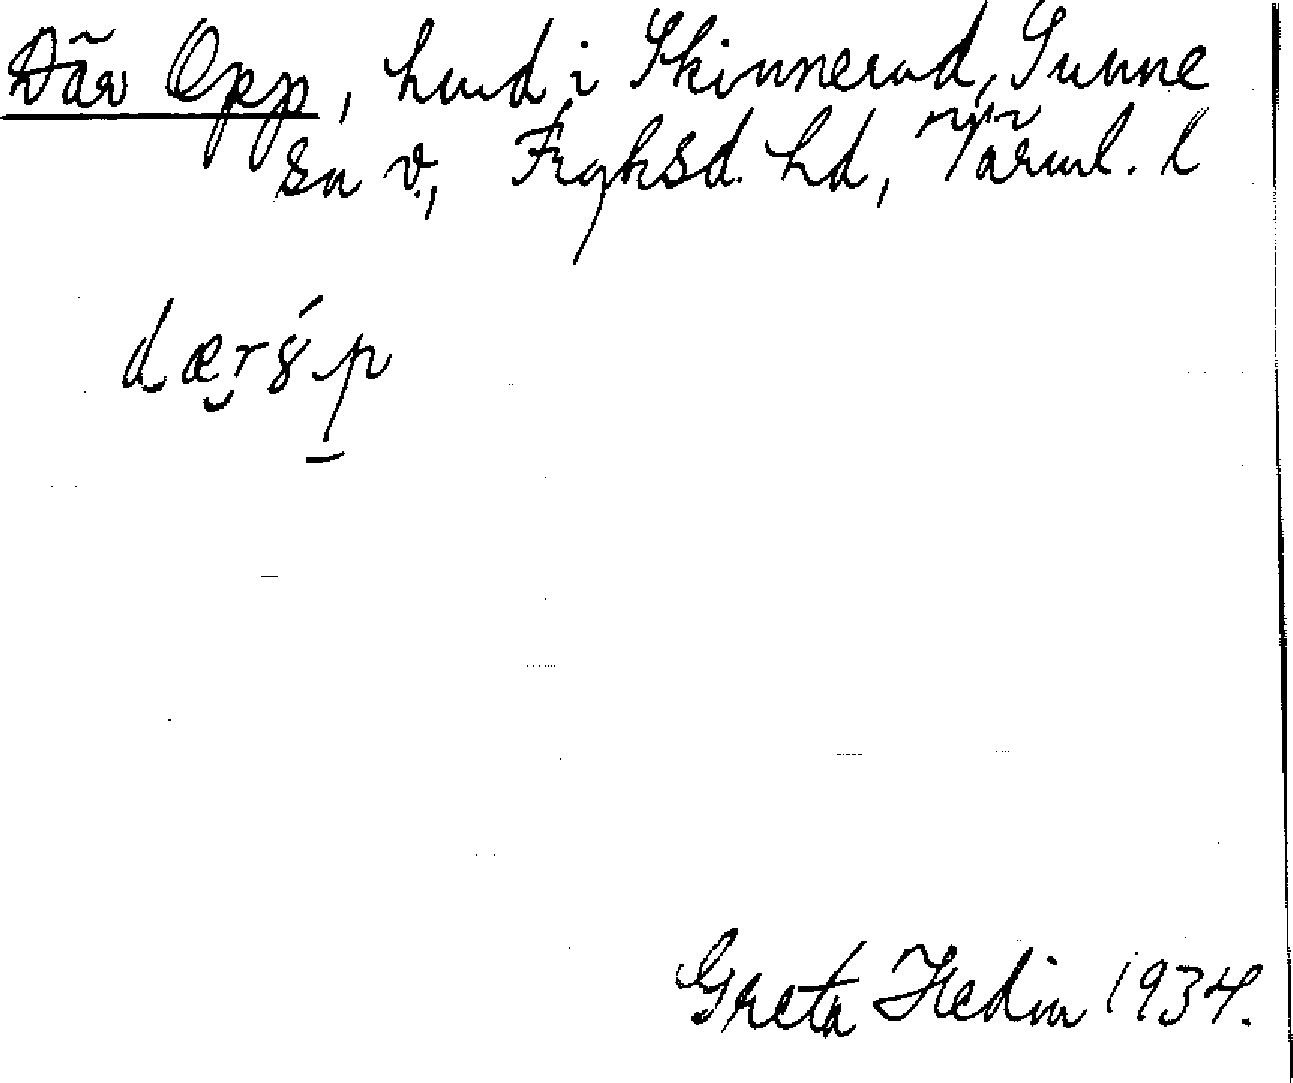 Där Opp, hmd i Skinnerud, Sunne
sn v., Fryksd. hd, Värml. l
dær̯8́p
Greta Hedin 1934.